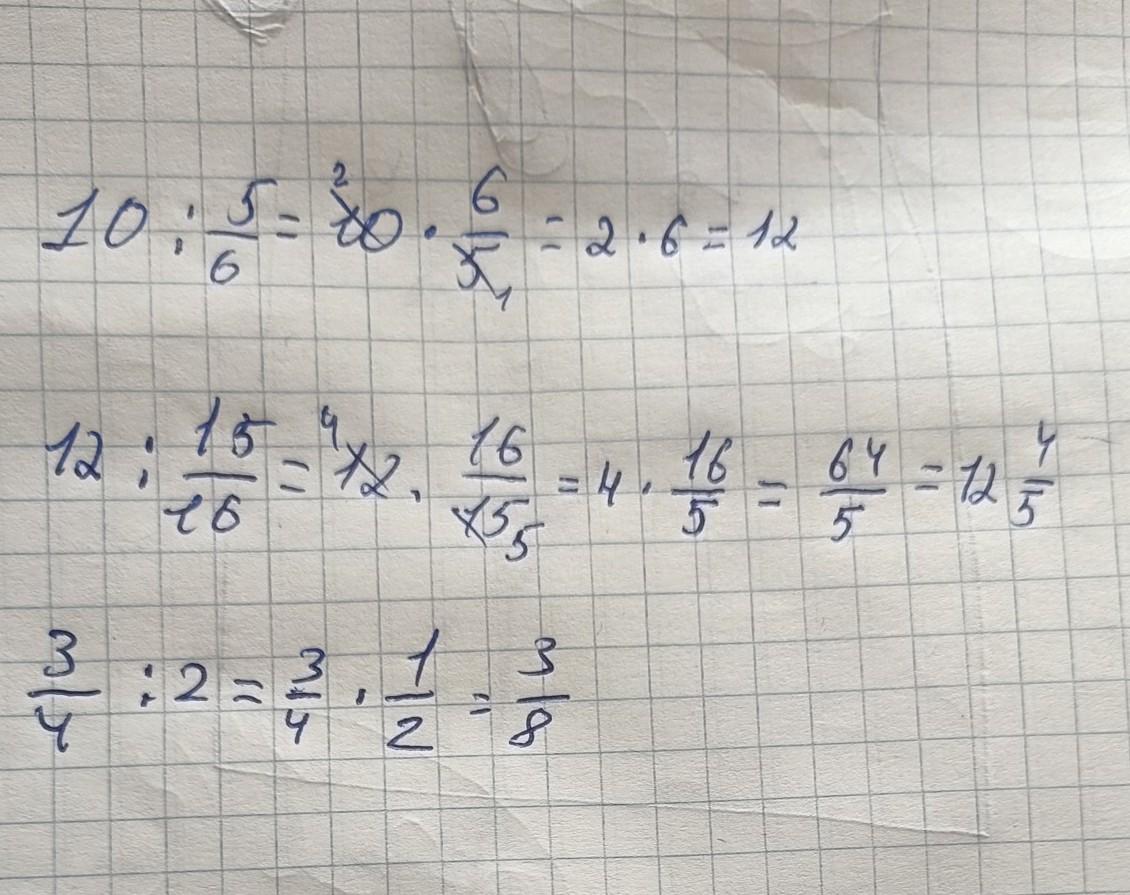 10 : 5/6 = 10² · 6/5₁ = 2 · 6 = 12
12 : 15/16 = ⁴12 · 16/15₅ = 4 · 16/5 = 64/5 = 12 4/5
3/4 : 2 = 3/4 · 1/2 = 3/8